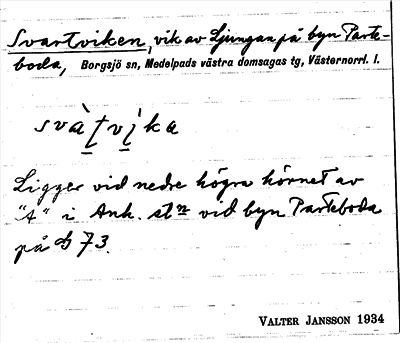 Svartviken, vik av Ljungan på byn Parte-
boda, Borgsjö sn, Medelpads västra domsagas tg, Västernorrl. l.
svàṭvìka
Ligger vid nedre högra hörnet av
"A" i Ank. stn vid byn Parteboda
på 73.
VALTER JANSSON 1934